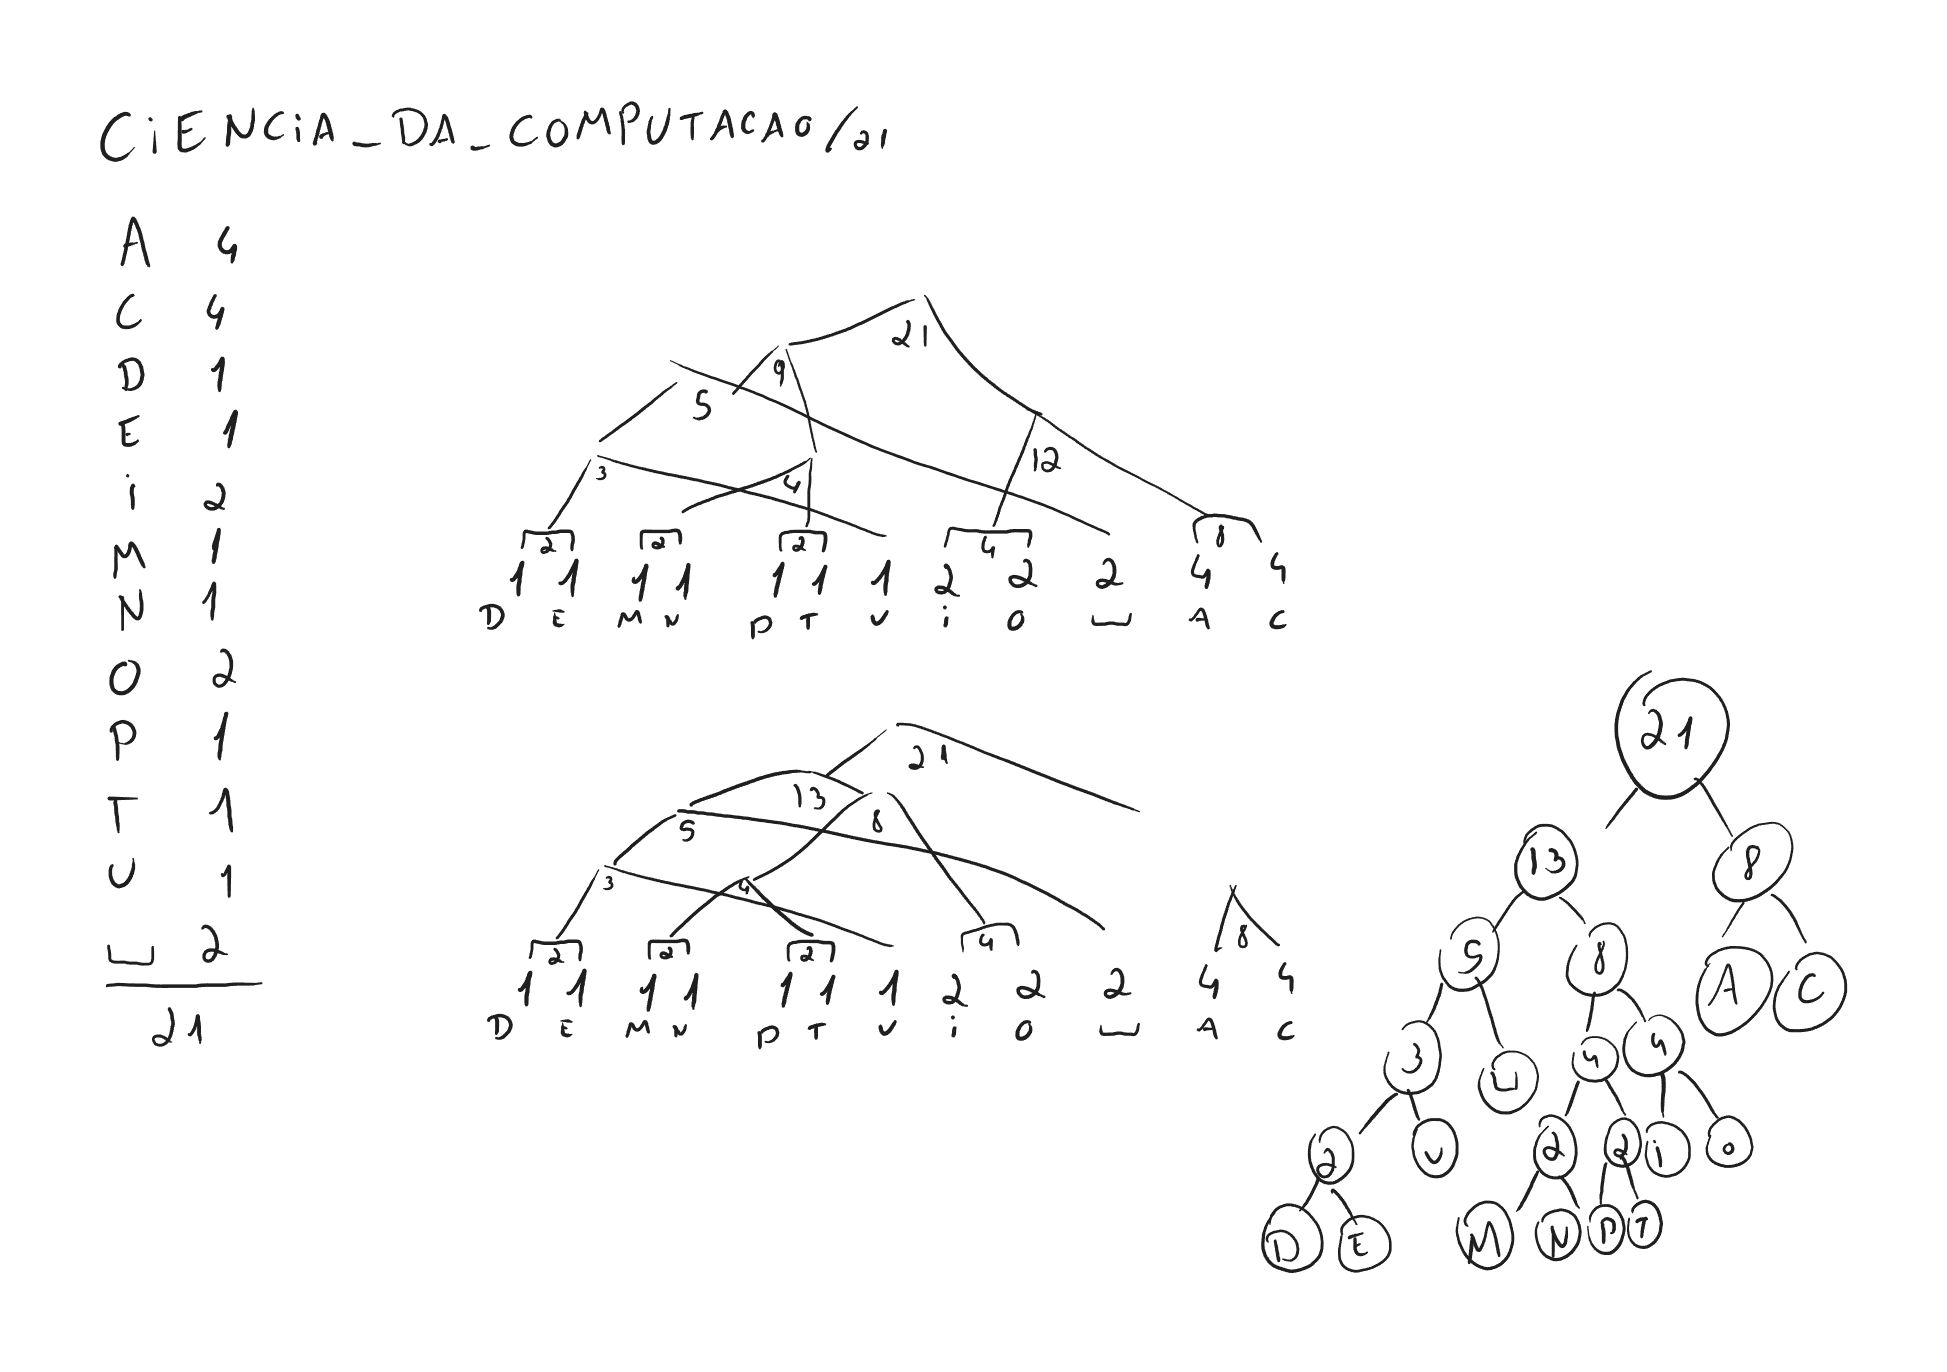 CiENCiA_DA_COMPUTACAO/21
A 4
C 4
D 1
E 1
i 2
M 1
N 1
O 2
P 1
T 1
U 1
⎵ 2
21
21
9
5
12
3
4
2 2 2 4 8
1 1 1 1 1 1 1 2 2 2 4 4
D E M N P T U i O ⎵ A C
21
13
8
5
3 4
2 2 2 4 8
1 1 1 1 1 1 1 2 2 2 4 4
D E M N P T U i O ⎵ A C
21
13 8
5 8 A C
3 ⎵ 4 4
2 U 2 2 i O
D E M N P T